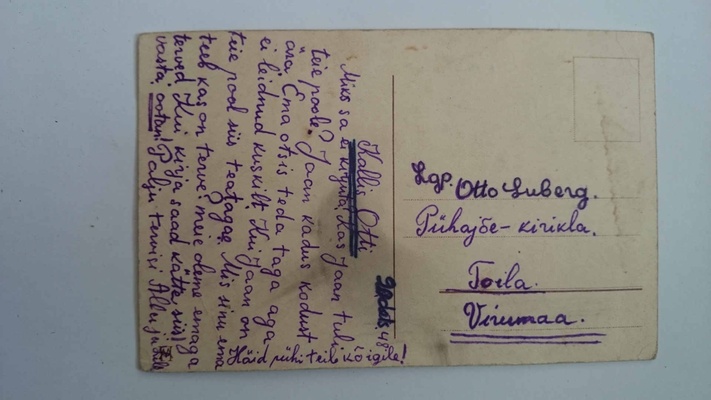 Kallis Otti
Miks sa ei kirjuta! Kas Jaan tuli
teie poole? Jaan kadus kodust
ära. Ema otsis teda taga aga
ei leidnud kuskilt. Kui Jaan on
teie pool siis teatage. Mis sinu ema
teeb kas on terve? meie oleme emaga
terved. Kui kirja saad kätte siis
vasta! ootan! Palju tervisi
Häid pühi teile kõigile!
48
Otto Luberg.
Pühajõe-kirikla.
Toila.
Virumaa.